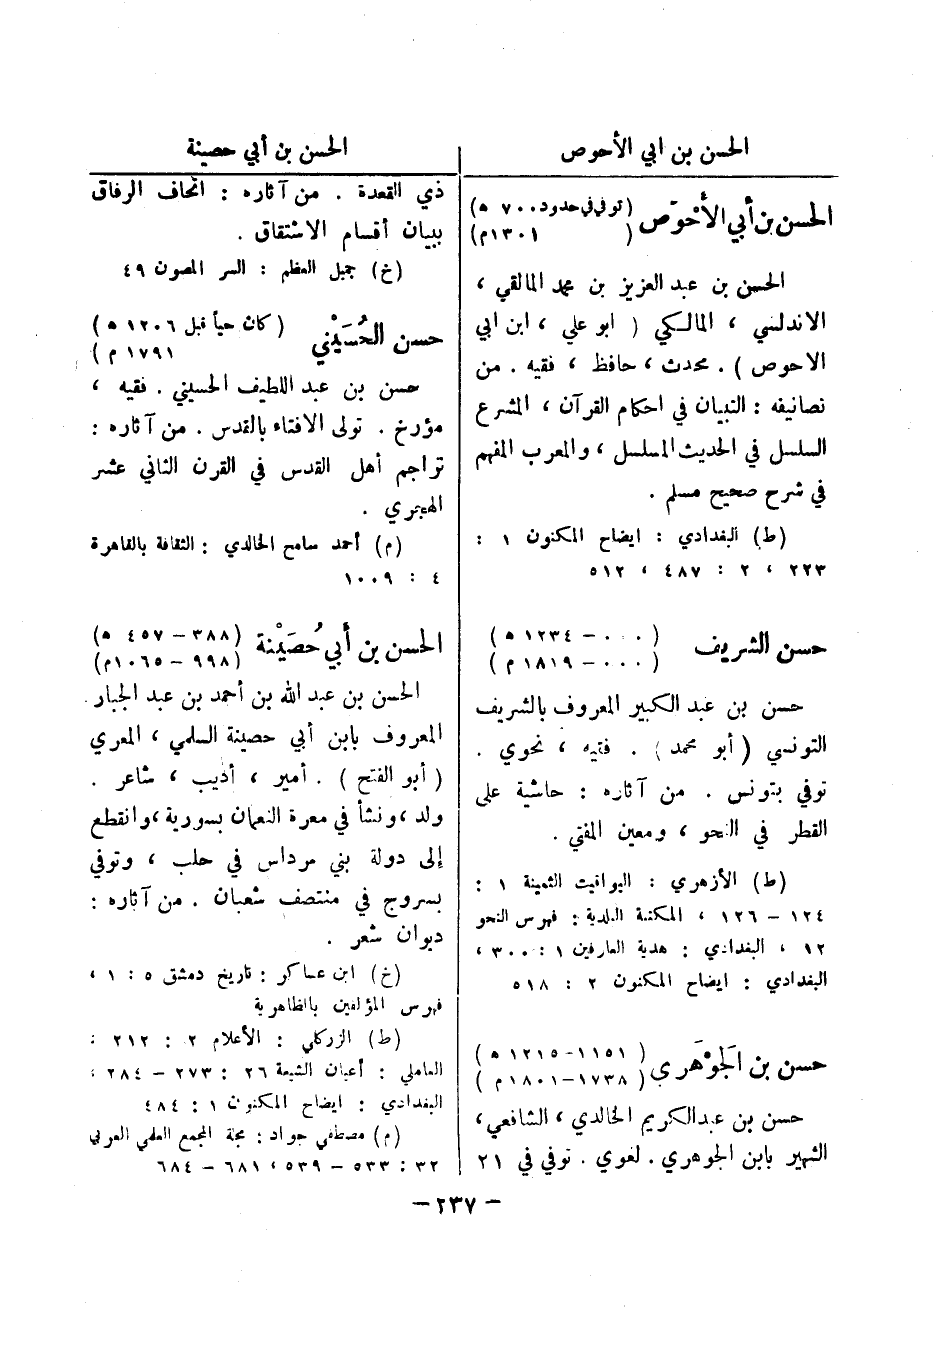 الحسن بن ابي الأحوص
الحسن بن أبي الأحْوَص (توفي في حدود ٧٠٠ ه)
(١٣٠١م)
الحسن بن عبد العزيز بن محمد المالقي ،
الاندلسي ، المالكي ( ابو علي ، ابن ابي
الاحوص ) . محدث ، حافظ ، فقيه . من
تصانيفه : التبيان في احكام القرآن ، المشرع
السلسل في الحديث المسلسل ، والمعرب المفهم
في شرح صحيح مسلم .
(ط) البغدادي : ايضاح المكنون ١ :
٢٢٣ ، ٢ : ٤٨٧ ، ٥١٢
حسن الشريف (٠٠٠ – ١٢٣٤ ه)
(٠٠٠ – ١٨١٩ م)
حسن بن عبد الكبير المعروف بالشريف
التونسي ( أبو محمد ) . فقيه ، نحوي .
توفي بتونس . من آثاره : حاشية على
القطر في النحو ، ومعين المفتي .
(ط) الأزهري : اليواقيت الثمينة ١ :
١٢٤ – ١٢٦ ، المكتبة البلدية : فهرس النحو
١٢ ، البغدادي : هدية العارفين ١ : ٣٠٠ ،
البغدادي : ايضاح المكنون ٢ : ٥١٨
حسن بن الجَوْهَري (١١٥١–١٢١٥ ه)
(١٧٣٨–١٨٠١ م)
حسن بن عبدالكريم الخالدي ، الشافعي ،
الشهير بابن الجوهري . لغوي . توفي في ٢١
الحسن بن أبي حصينة
ذي القعدة . من آثاره : اتحاف الرفاق
ببيان أقسام الاشتقاق .
(خ) جميل العظم : السر المصون ٤٩
حسن الحُسَيْني (كان حياً قبل ١٢٠٦ ه)
(١٧٩١ م)
حسن بن عبد اللطيف الحسيني . فقيه ،
مؤرخ . تولى الافتاء بالقدس . من آثاره :
تراجم أهل القدس في القرن الثاني عشر
الهجري .
(م) أحمد سامح الخالدي : الثقافة بالقاهرة
٤ : ١٠٠٩
الحسن بن أبي حُصَيْنة (٣٨٨ – ٤٥٧ ه)
(٩٩٨ – ١٠٦٥م)
الحسن بن عبد الله بن أحمد بن عبد الجبار
المعروف بابن أبي حصينة السلمي ، المعري
( أبو الفتح ) . أمير ، أديب ، شاعر .
ولد ،ونشأ في معرة النعمان بسورية ،وانقطع
إلى دولة بني مرداس في حلب ، وتوفي
بسروج في منتصف شعبان . من آثاره :
ديوان شعر .
(خ) ابن عساكر : تاريخ دمشق ٥ : ١ ،
فهرس المؤلفين بالظاهرية
(ط) الزركلي : الأعلام ٢ : ٢١٢ ،
العاملي : أعيان الشيعة ٢٦ : ٢٧٣ – ٢٨٤ ،
البغدادي : ايضاح المكنون ١ : ٤٨٤
(م) مصطفى جواد : مجلة المجمع العلمي العربي
٣٢ : ٥٣٣ – ٥٣٩ ، ٦٨١ – ٦٨٤
– ٢٣٧ –